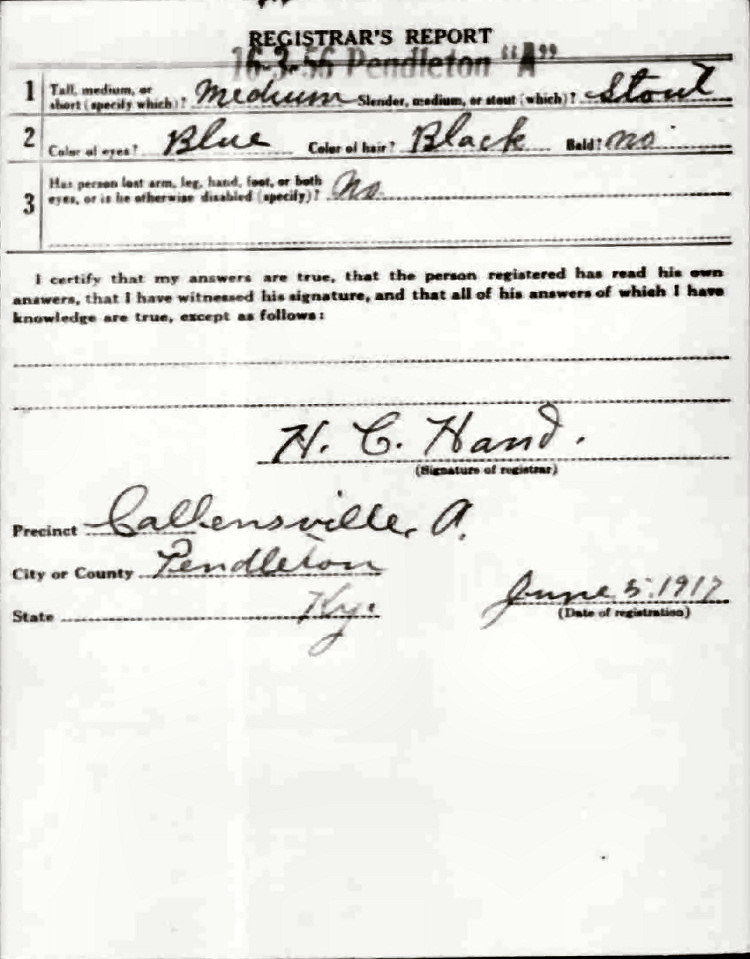 REGISTRAR'S REPORT
16-3-56 Pendleton "A"
1 Tall, medium, or short (specify which)? Medium Slender, medium, or stout (which)? Stout
2 Color of eyes? Blue Color of hair? Black Bald? no
3 Has person lost arm, leg, hand, foot, or both eyes, or is he otherwise disabled (specify)? No
I certify that my answers are true, that the person registered has read his own
answers, that I have witnessed his signature, and that all of his answers of which I have
knowledge are true, except as follows:
H. C. Hand.
(Signature of registrar)
Precinct Callensville, A.
City or County Pendleton
State Ky.
June 5, 1917
(Date of registration)